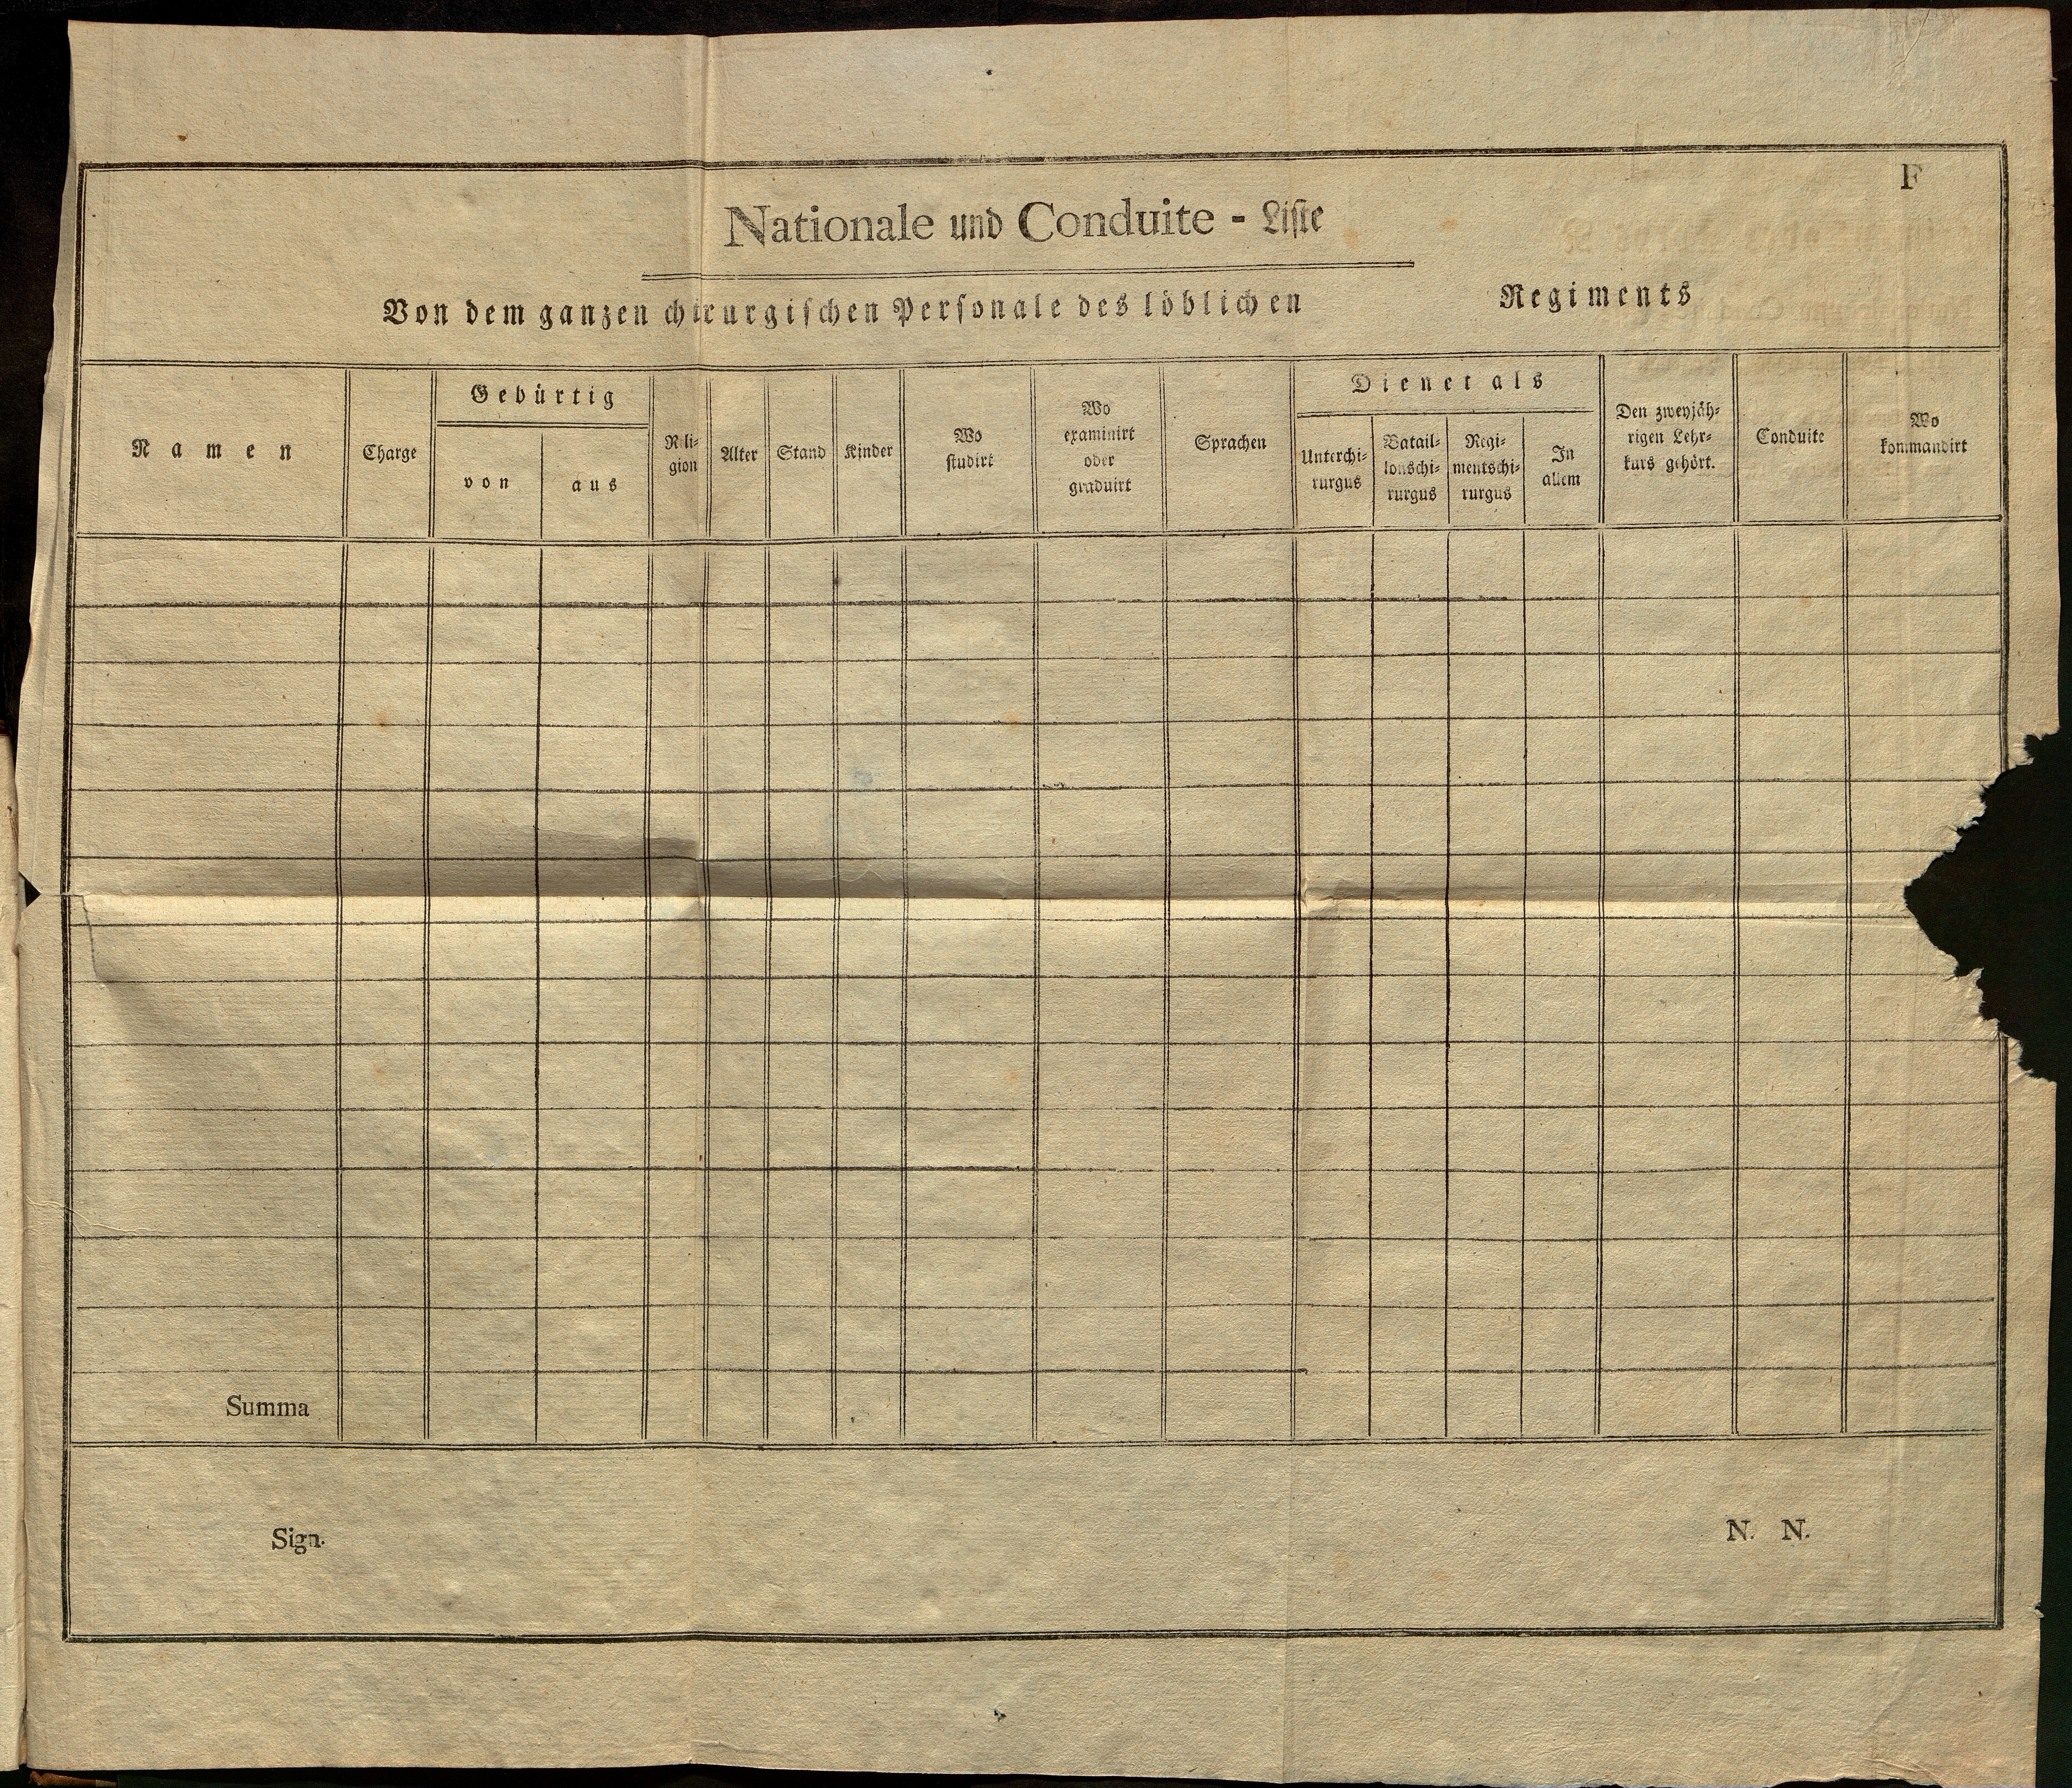 F
Nationale und Conduite - Liste
Von dem ganzen chirurgischen Personale des löblichen Regiments
Namen
Charge
Gebürtig
von
aus
Reli-
gion
Alter
Stand
Kinder
Wo
studirt
Wo
examinirt
oder
graduirt
Sprachen
Dienet als
Unterchi-
rurgus
Batail-
lonschi-
rurgus
Regi-
mentschi-
rurgus
In
allem
Den zweyjäh-
rigen Lehr-
kurs gehört.
Conduite
Wo
kommandirt
Summa
Sign.
N. N.